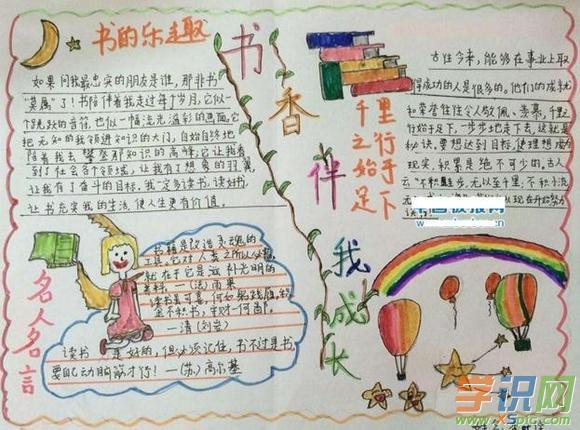 书的乐趣
如果问我最忠实的朋友是谁,那非书
"莫属"了!书陪伴着我走过每个岁月,它似一
个跳跃的音符,也似一幅流光溢彩的画面,它
把无知的我领进知识的大门,自始自终地
陪着我去攀登那知识的高峰;它让我看
到了社会各个领域,让我有了想象的羽翼,
让我有了奋斗的目标,我一定多读书,读好书,
让书充实我的生活,使人生更有价值。
书香伴我成长
千里之行始于足下
古往今来,能够在事业上取
得成功的人是很多的,他们的成就
和荣誉往往令人敬佩、羡慕,千里之
行始于足下,一步步地走下去,这就是
秘诀,要想达到目标,使理想成为
现实,积累是绝不可少的,古人
云"不积跬步,无以至千里;不积小流
现在开始努力
读书!
名人名言
书籍是改造灵魂的
工具,它对人类之所以必要,
就在于它是滋补光明的
养料。—(法)雨果
读书真可喜,何如
金不积书,
—清(刘岩)
读书,是好的,但必须记住,书不过是书
要自己动脑筋才行!—(苏)高尔基
学识网
www.xspic.com